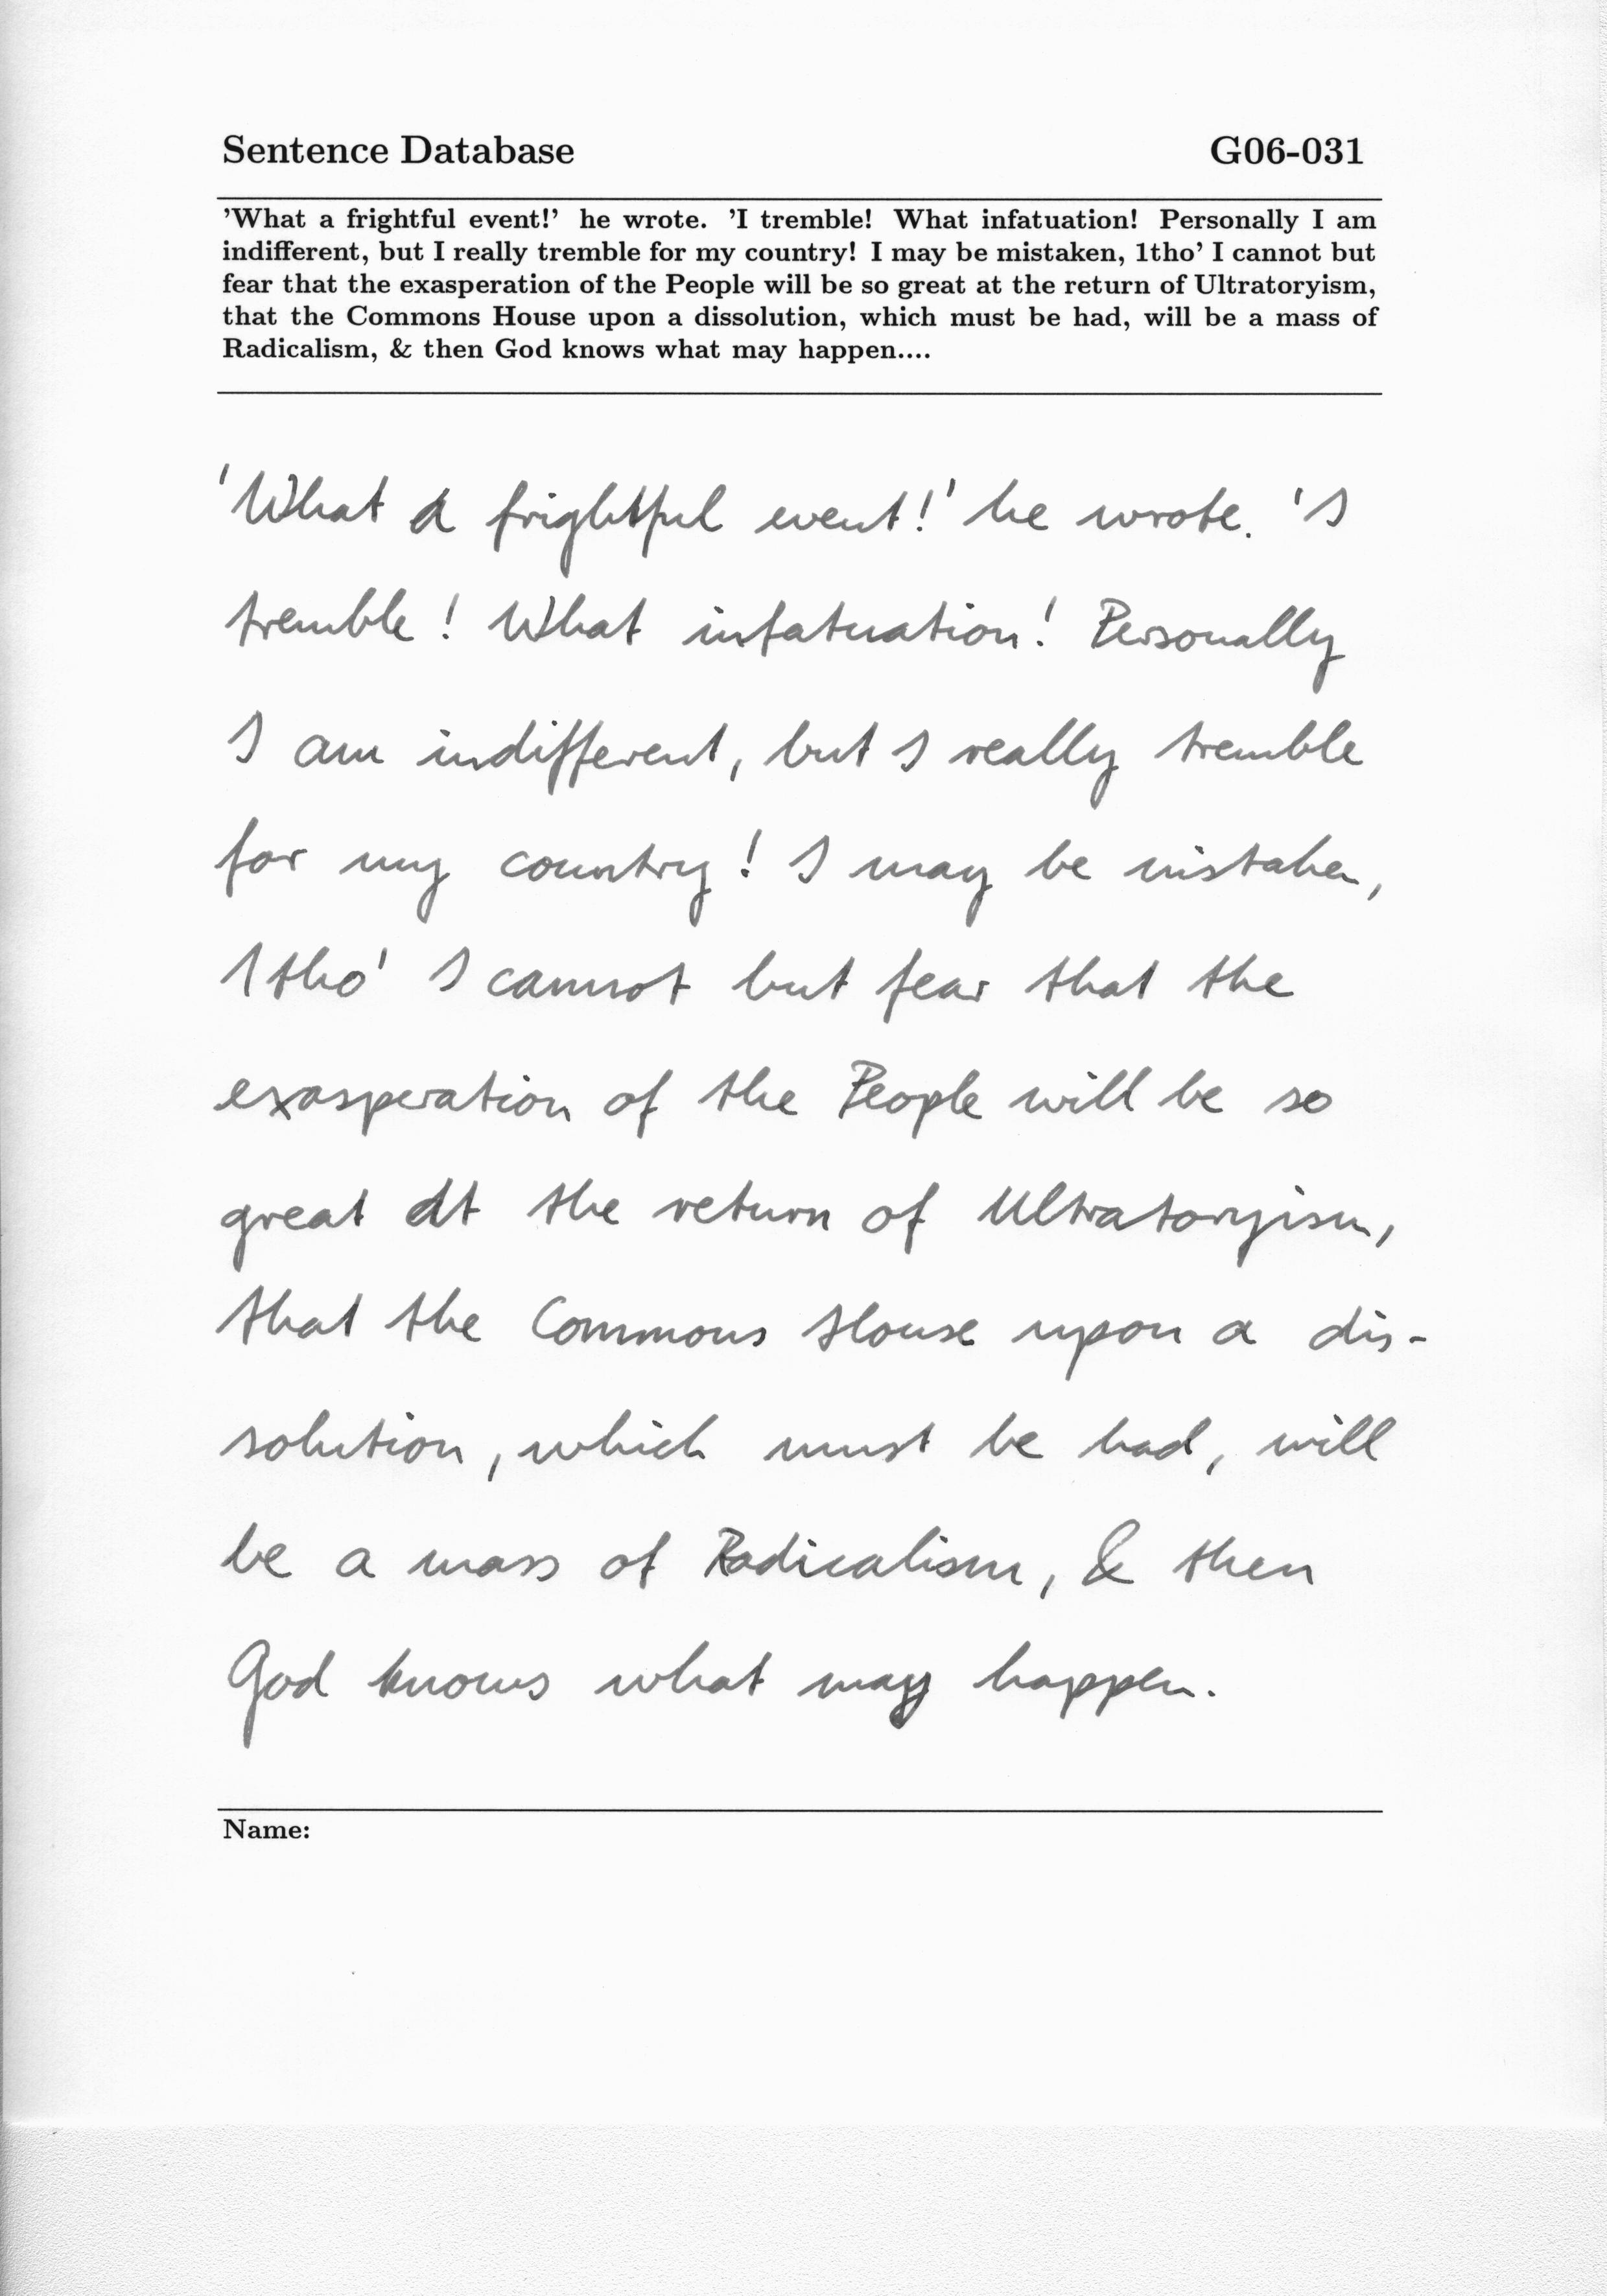 Sentence Database G06-031
'What a frightful event!' he wrote. 'I tremble! What infatuation! Personally I am
indifferent, but I really tremble for my country! I may be mistaken, 1tho' I cannot but
fear that the exasperation of the People will be so great at the return of Ultratoryism,
that the Commons House upon a dissolution, which must be had, will be a mass of
Radicalism, & then God knows what may happen....
'What a frightful event!' he wrote. 'I
tremble! What infatuation! Personally
I am indifferent, but I really tremble
for my country! I may be mistaken,
1tho' I cannot but fear that the
exasperation of the People will be so
great at the return of Ultratoryism,
that the Commons House upon a dis-
solution, which must be had, will
be a mass of Radicalism, & then
God knows what may happen.
Name: